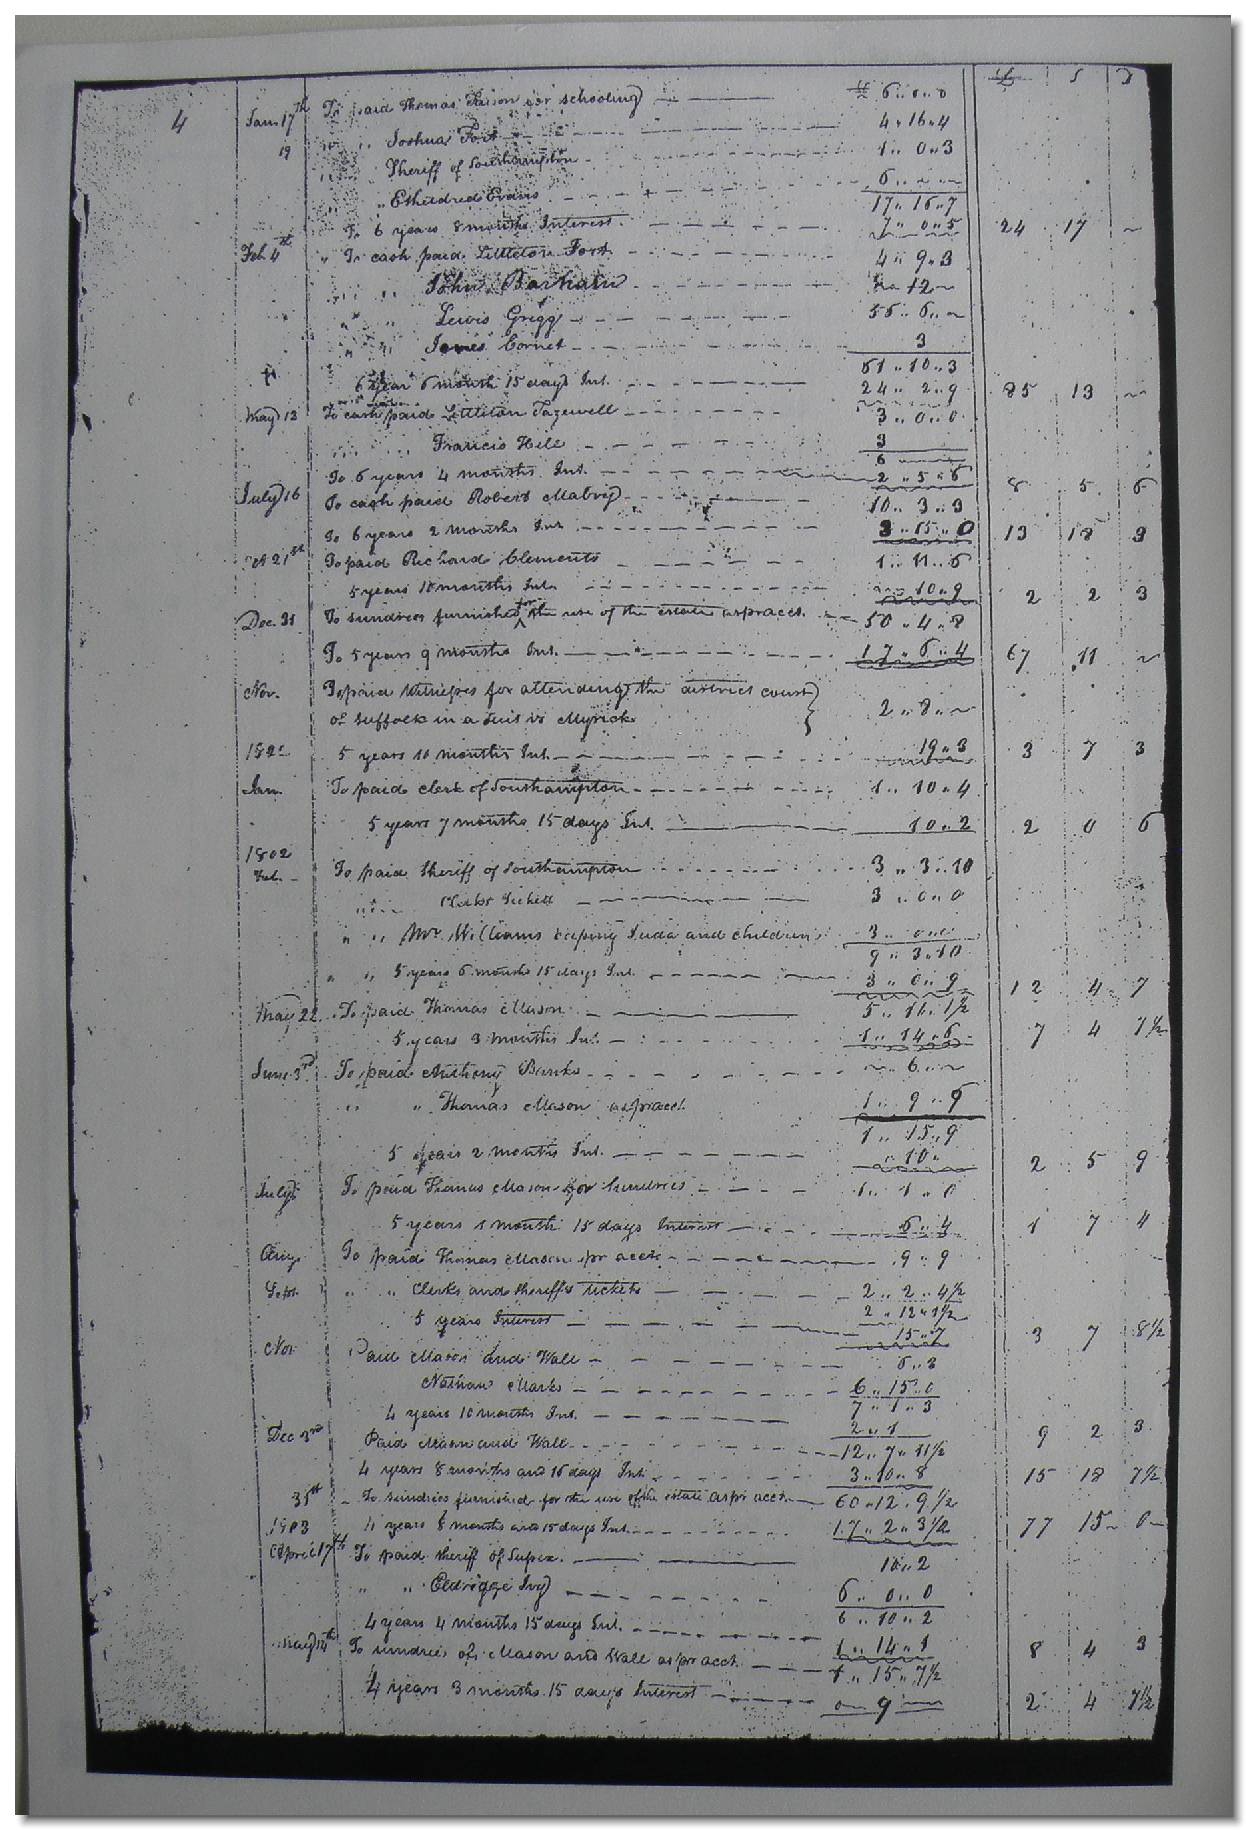 £ S D
4 Jan. 17th To paid Thomas for schooling £ 6 .. 0 .. 0
19 " " Joshua Fort 4 .. 16 .. 4
" " Sheriff of Southampton 1 .. 0 .. 3
" " Etheldred Evans 6 .. ~ ..
17 .. 16 .. 7
To 6 years 8 months Interest 7 .. 0 .. 5 24 17 ~
Feb 4th " To cash paid Littleton Fort 4 .. 9 .. 3
" " John Barham 12 ~
" " Lewis Grigg 55 .. 6 .. ~
" " James Cornet 3
61 .. 10 .. 3
6 year 6 month 15 days Int. 24 .. 2 .. 9 85 13 ~
May 13 To cash paid Littleton Tazewell 3 .. 0 .. 0
" " Francis Hill 3
6
To 6 years 4 months Int. 2 .. 5 .. 6 8 5 6
July 16 To cash paid Robert Mabry 10 .. 3 .. 3
To 6 years 2 months Int 3 .. 15 .. 0 13 18 3
Oct 21st To paid Richard Clements 1 .. 11 .. 6
5 years 10 months Int. 10 .. 9 2 2 3
Dec. 31 To sundries furnished for the use of the estate as pr acct. 50 .. 4 .. 8
To 5 years 9 months Int. 17 .. 6 .. 4 67 11 ~
Nov. To paid Witnesses for attending the district court }
of Suffolk in a Suit vs Myrick 2 .. 8 .. ~
5 years 10 months Int. 19 .. 3 3 7 3
Jan To paid clerk of Southampton 1 .. 10 .. 4
5 years 7 months 15 days Int. 10 .. 2 2 0 6
1802
Feb. To paid Sheriff of Southampton 3 .. 3 .. 10
" " Clerks Tickett 3 .. 0 .. 0
" " Mr. Williams keeping Juda and children 3 .. 0 .. 0
9 .. 3 .. 10
" " 5 years 6 months 15 days Int. 3 .. 0 .. 9 12 4 7
May 22 To paid Thomas Mason 5 .. 1½
5 years 3 months Int. 1 .. 14 .. 6 7 4 7½
June 3rd To paid Anthony Banks ~ .. 6 .. ~
" " Thomas Mason as pr acct 1 .. 9 .. 9
1 .. 15 .. 9
5 years 2 months Int. .. 10 .. 2 5 9
July To paid Thomas Mason for Sundries 1 .. 1 .. 0
5 years 1 month 15 days Interest 6 .. 4 1 7 4
Aug. To paid Thomas Mason pr acct 9 .. 9
Sept. " " Clerks and sheriffs tickets 2 .. 2 .. 4½
2 .. 12 .. 1½
5 years Interest 15 .. 7 3 7 8½
Nov Paid Mason and Wall 6 .. 3
Nathan Marks 6 .. 15 .. 0
7 .. 1 .. 3
4 years 10 months Int. 2 .. 1 9 2 3
Dec 3rd Paid Mason and Wall 12 .. 7 .. 11½
4 years 8 months and 16 days Int 3 .. 10 .. 8 15 18 7½
31st To sundries furnished for the use of the estate as pr acct. 60 .. 12 .. 9½
1803 4 years 8 months and 15 days Int. 17 .. 2 .. 3½ 77 15 ~ 0 ~
April 17th To paid Sheriff of Sussex. 10 .. 2
" " Eldridge Ivy 6 .. 0 .. 0
6 .. 10 .. 2
4 years 4 months 15 days Int. 1 .. 14 .. 1 8 4 3
May 14th To sundries of Mason and Wall as pr acct. 1 .. 15 .. 7½
4 years 3 months 15 days Interest 9 2 4 7½